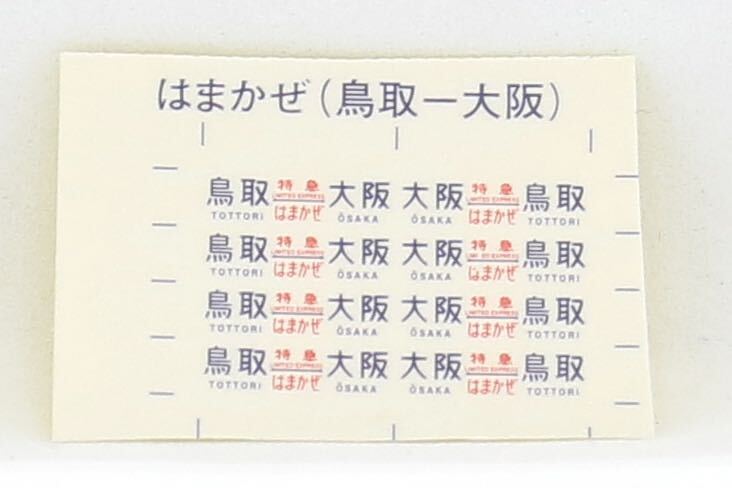 はまかぜ(鳥取ー大阪)
鳥取 特急 大阪 大阪 特急 鳥取
LIMITED EXPRESS LIMITED EXPRESS
TOTTORI はまかぜ ŌSAKA ŌSAKA はまかぜ TOTTORI
鳥取 特急 大阪 大阪 特急 鳥取
LIMITED EXPRESS LIMITED EXPRESS
TOTTORI はまかぜ ŌSAKA ŌSAKA はまかぜ TOTTORI
鳥取 特急 大阪 大阪 特急 鳥取
LIMITED EXPRESS LIMITED EXPRESS
TOTTORI はまかぜ ŌSAKA ŌSAKA はまかぜ TOTTORI
鳥取 特急 大阪 大阪 特急 鳥取
LIMITED EXPRESS LIMITED EXPRESS
TOTTORI はまかぜ ŌSAKA ŌSAKA はまかぜ TOTTORI